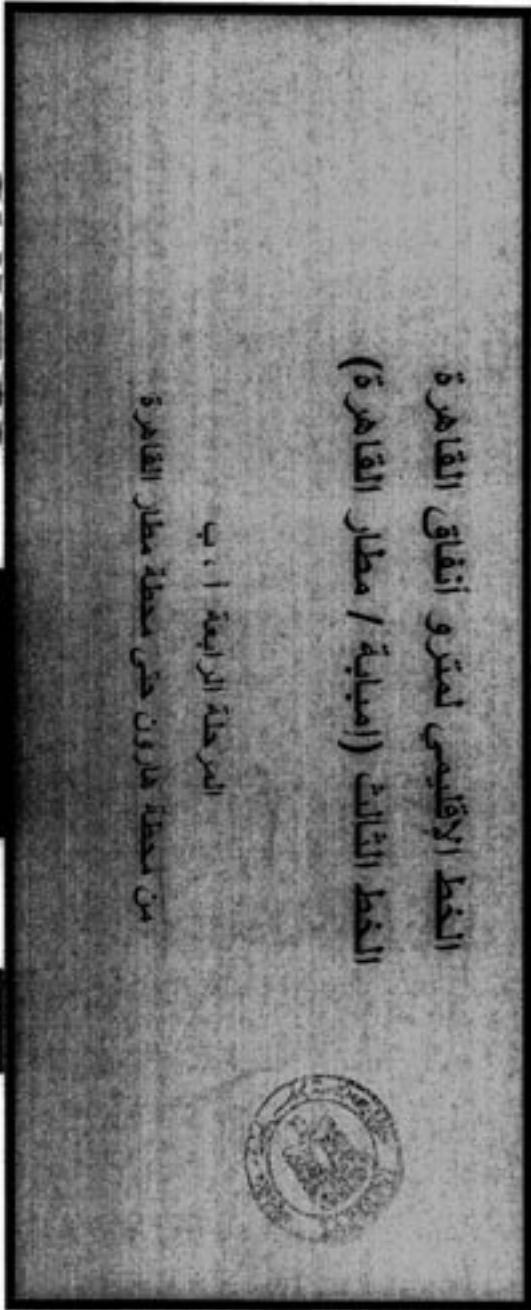 الخط الإقليمي لمترو أنفاق القاهرة
الخط الثالث (امبابة / مطار القاهرة)
المرحلة الرابعة ا ، ب
من محطة هارون حتى محطة مطار القاهرة